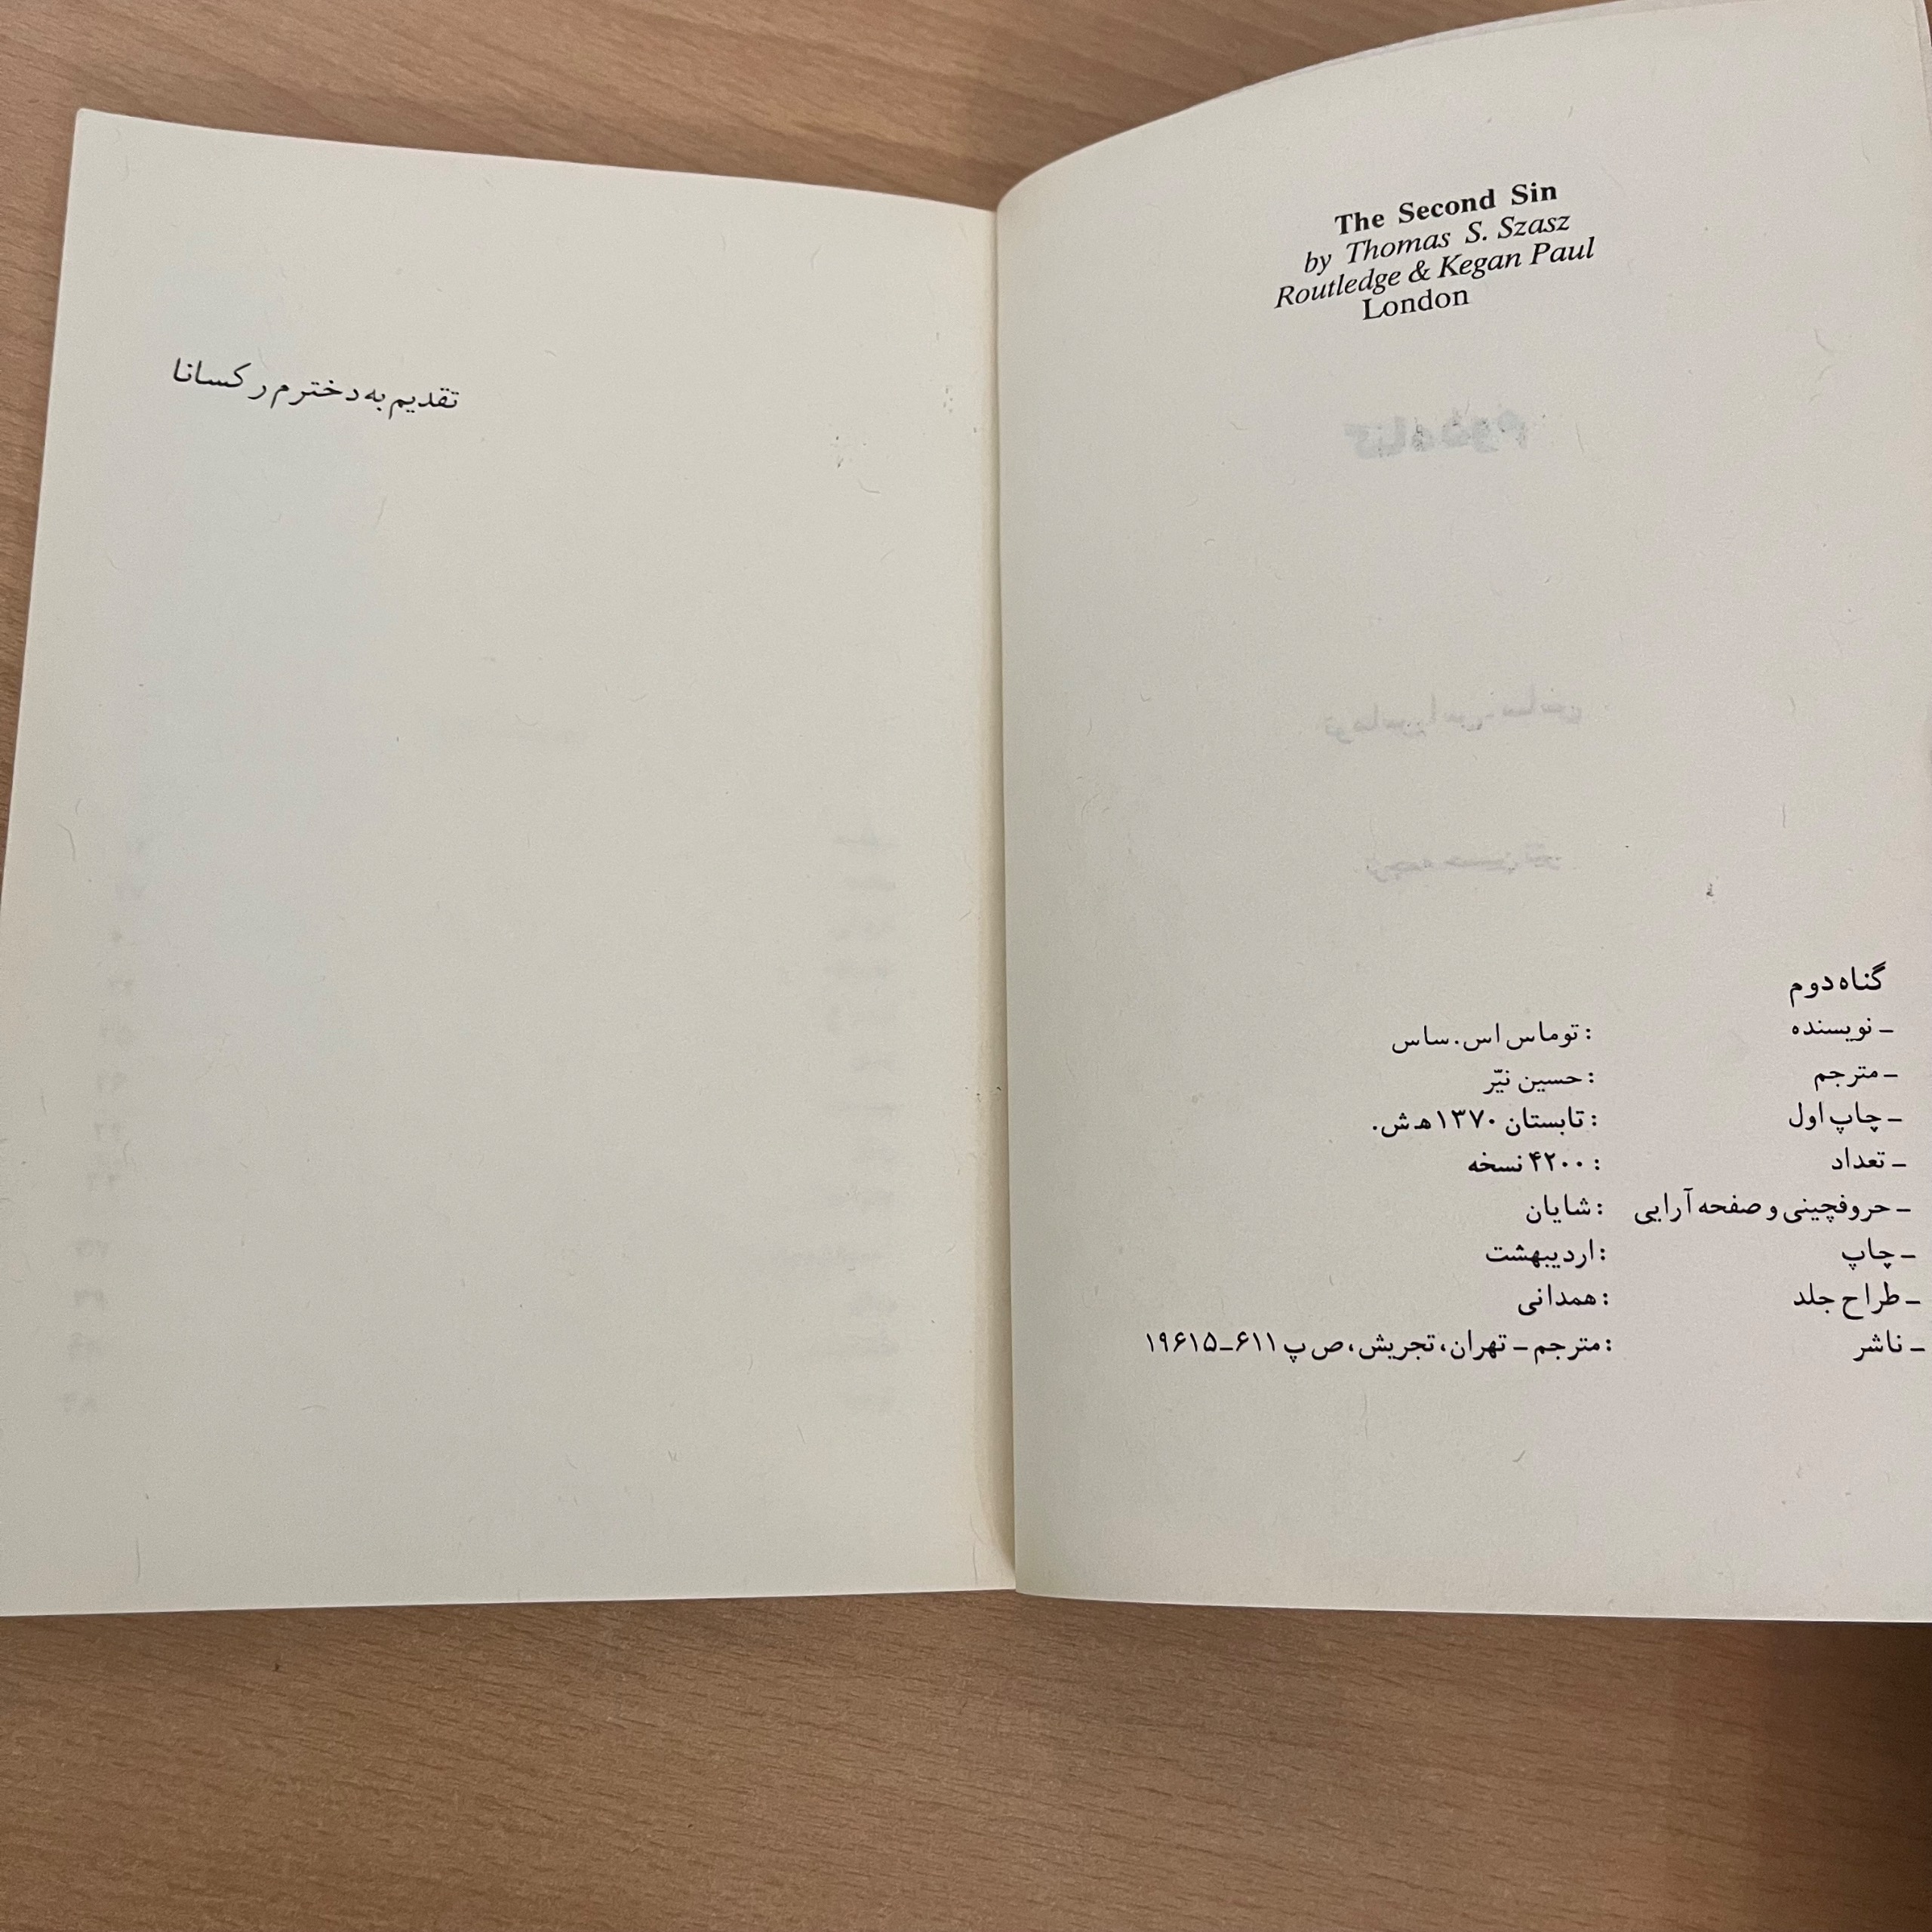 The Second Sin
by Thomas S. Szasz
Routledge & Kegan Paul
London
گناه دوم
توماس اس. ساس
ترجمه حسین نیّر
گناه دوم
ـ نویسنده : توماس اس. ساس
ـ مترجم : حسین نیّر
ـ چاپ اول : تابستان ۱۳۷۰ ه‍ ش.
ـ تعداد : ۴۲۰۰ نسخه
ـ حروفچینی و صفحه آرایی : شایان
ـ چاپ : اردیبهشت
ـ طراح جلد : همدانی
ـ ناشر : مترجم ـ تهران، تجریش، ص پ ۶۱۱ـ۱۹۶۱۵
تقدیم به دخترم رکسانا